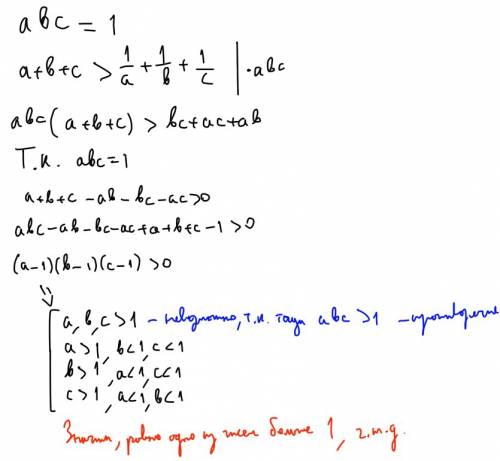 abc = 1
a+b+c > 1/a + 1/b + 1/c | · abc
abc(a+b+c) > bc+ac+ab
Т.к. abc=1
a+b+c -ab-bc-ac>0
abc-ab-bc-ac+a+b+c-1>0
(a-1)(b-1)(c-1)>0
⇓
[ a, b, c>1 - невозможно, т.к. тогда abc>1 - противоречие
a>1, b<1, c<1
b>1, a<1, c<1
c>1, a<1, b<1
Значит, ровно одно из чисел больше 1, ч.т.д.